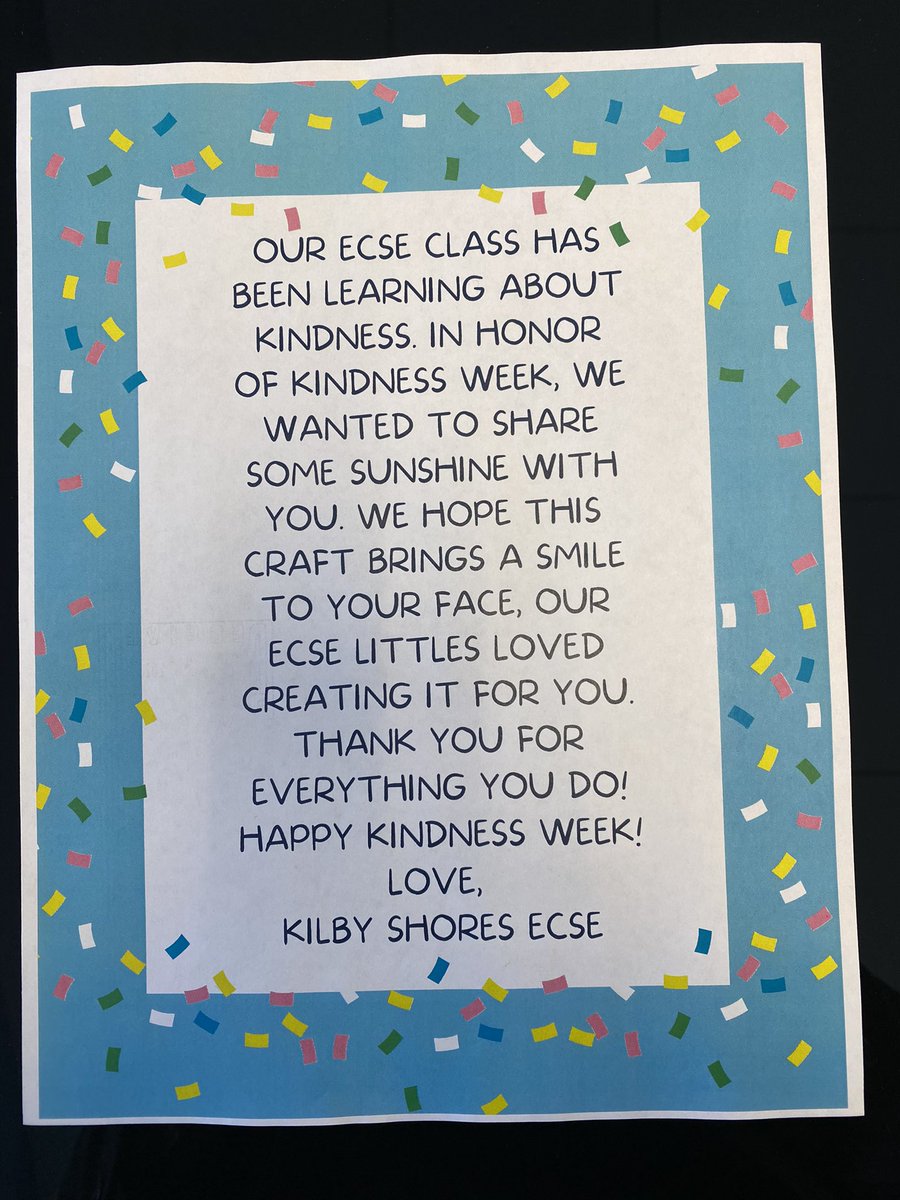 OUR ECSE CLASS HAS
BEEN LEARNING ABOUT
KINDNESS. IN HONOR
OF KINDNESS WEEK, WE
WANTED TO SHARE
SOME SUNSHINE WITH
YOU. WE HOPE THIS
CRAFT BRINGS A SMILE
TO YOUR FACE, OUR
ECSE LITTLES LOVED
CREATING IT FOR YOU.
THANK YOU FOR
EVERYTHING YOU DO!
HAPPY KINDNESS WEEK!
LOVE,
KILBY SHORES ECSE